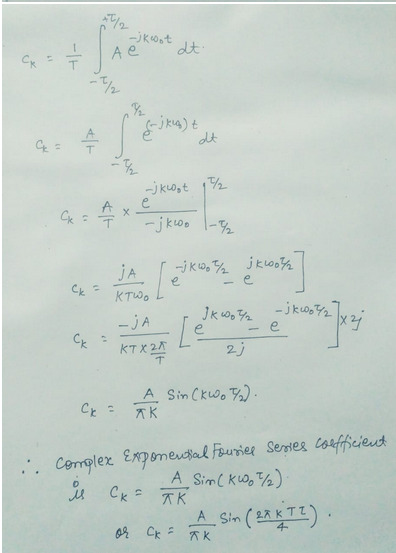 C_k = 1/T ∫_{-τ/2}^{+τ/2} A e^{-jkω₀t} dt.
C_k = A/T ∫_{-τ/2}^{τ/2} e^{(-jkω₀)t} dt
C_k = A/T × e^{-jkω₀t}/(-jkω₀) |_{-τ/2}^{τ/2}
C_k = jA/(KTω₀) [ e^{-jkω₀τ/2} - e^{jkω₀τ/2} ]
C_k = -jA/(KT×2π/T) [ (e^{jkω₀τ/2} - e^{-jkω₀τ/2})/2j ] × 2j
C_k = A/(πK) Sin(kω₀τ/2).
∴ Complex Exponential Fourier Series Coefficient
is C_k = A/(πK) Sin(kω₀τ/2).
or C_k = A/(πK) Sin(2πkTτ/4).